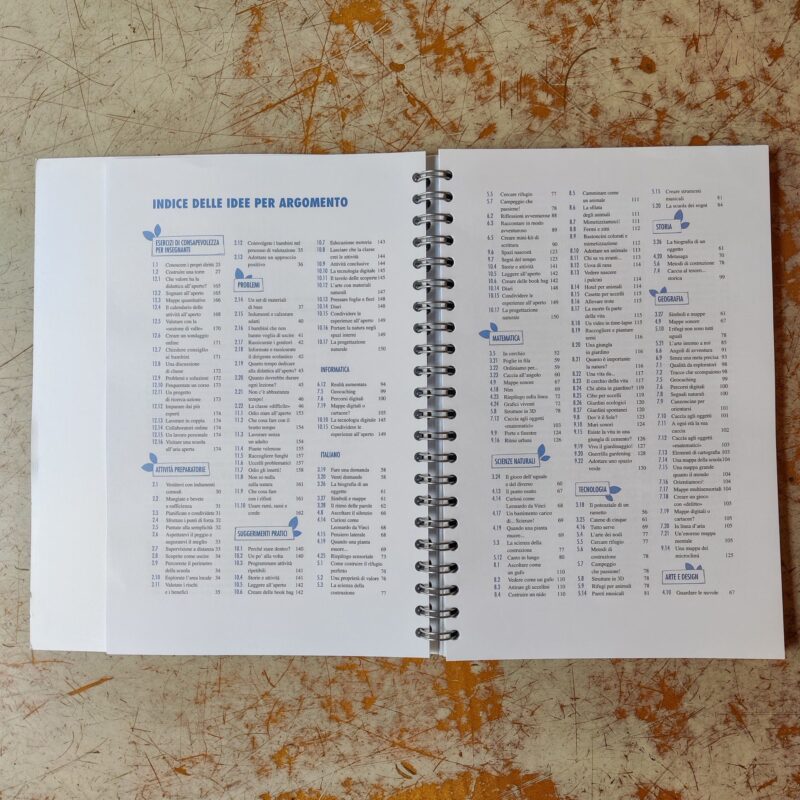 INDICE DELLE IDEE PER ARGOMENTO
ESERCIZI DI CONSAPEVOLEZZA
PER INSEGNANTI
1.1 Conoscere i propri diritti 25
1.2 Costruire una torre 27
12.1 Che valore ha la
didattica all'aperto? 165
12.2 Sognare all'aperto 165
12.3 Mappe quantitative 166
12.4 Il calendario delle
attività all'aperto 168
12.5 Valutare con la
votazione di valle 170
12.6 Creare un sondaggio
online 171
12.7 Chiedere consiglio
ai bambini 171
12.8 Una discussione
di classe 172
12.9 Problemi e soluzioni 172
12.10 Frequentare un corso 173
12.11 Un progetto
di ricerca-azione 173
12.12 Imparare dai più
esperti 174
12.13 Lavorare in coppia 174
12.14 Collaboratori online 174
12.15 Un lavoro personale 174
12.16 Visitare una scuola
all'aria aperta 174
ATTIVITÀ PREPARATORIE
2.1 Vestirsi con indumenti
comodi 30
2.2 Mangiare e bevete
a sufficienza 31
2.3 Pianificare e condividere 31
2.4 Sfruttare i punti di forza 32
2.5 Puntare alla semplicità 32
2.6 Aspettarsi il peggio e
augurarsi il meglio 33
2.7 Supervisione a distanza 33
2.8 Scoprire come uscire 34
2.9 Percorrete il perimetro
della scuola 34
2.10 Esplorate l'area locale 34
2.11 Valutare i rischi
e i benefici 35
2.12 Coinvolgere i bambini nel
processo di valutazione 35
2.13 Adottare un approccio
positivo 36
PROBLEMI
2.14 Un set di materiali
di base 37
2.15 Indumenti e calzature
adatti 40
2.16 I bambini che non
hanno voglia di uscire 41
2.17 Rassicurate i genitori 42
2.18 Informate e rassicurate
il dirigente scolastico 42
2.19 Quanto tempo dedicare
alla didattica all'aperto? 43
2.20 Quanto dovrebbe durare
ogni lezione? 45
2.21 Non c'è abbastanza
tempo! 46
2.22 La classe «difficile» 46
11.1 Odio stare all'aperto! 153
11.2 Che cosa fare con il
brutto tempo 154
11.3 Lavorare senza
un adulto 154
11.4 Piante velenose 155
11.5 Raccogliere funghi 157
11.6 Uccelli problematici 157
11.7 Odio gli insetti! 158
11.8 Non si nulla
sulla natura 161
11.9 Che cosa fare
con i rifiuti 161
11.10 Usare rami, sassi e
corde 162
SUGGERIMENTI PRATICI
10.1 Perché state dentro? 140
10.2 Un po' alla volta 140
10.3 Programmate attività
ripetibili 141
10.4 Storie e attività 141
10.5 Leggere all'aperto 142
10.6 Creare delle book bag 142
10.7 Educazione motoria 143
10.8 Lasciare che la classe
crei le attività 144
10.9 Attività conclusive 144
10.10 La tecnologia digitale 145
10.11 Il tavolo delle scoperte 145
10.12 L'arte con materiali
naturali 147
10.13 Pressare foglie e fiori 148
10.14 Diari 148
10.15 Condividere le
esperienze all'aperto 149
10.16 Portare la natura negli
spazi interni 149
10.17 La progettazione
naturale 150
INFORMATICA
6.12 Realtà aumentata 94
7.5 Geocaching 99
7.6 Percorsi digitali 100
7.19 Mappe digitali o
cartacee? 105
10.10 La tecnologia digitale 145
10.15 Condividere le
esperienze all'aperto 149
ITALIANO
3.19 Fare una domanda 58
3.20 Venti domande 58
3.26 La biografia di un
oggetto 61
3.27 Simboli e mappe 61
3.28 Il ritmo delle parole 62
4.4 Ascoltare il silenzio 66
4.14 Curiosi come
Leonardo da Vinci 68
4.15 Pensiero laterale 68
4.19 Quando una pianta
muore... 69
4.25 Riepilogo sensoriale 73
5.1 Come costruire il rifugio
perfetto 74
5.2 Una proprietà di valore 76
5.3 La scienza della
costruzione 77
5.5 Cercare rifugio 77
5.7 Campeggio che
passione! 78
6.2 Riflessioni avventurose 88
6.3 Raccontare in modo
avventuroso 89
6.5 Creare mini-kit di
scrittura 90
9.6 Spazi nascosti 123
9.7 Segni del tempo 123
10.4 Storie e attività 141
10.5 Leggere all'aperto 142
10.6 Creare delle book bag 142
10.14 Diari 148
10.15 Condividere le
esperienze all'aperto 149
10.17 La progettazione
naturale 150
MATEMATICA
3.5 In cerchio 52
3.21 Foglie in fila 59
3.22 Ordiniamo per... 59
3.23 Caccia all'angolo 60
4.9 Mappe sonore 67
4.18 Nim 69
4.23 Riepilogo sulla linea 72
4.24 Grafici viventi 72
5.8 Strutture in 3D 78
7.12 Caccia agli oggetti
«matematici» 102
9.9 Porte e finestre 124
9.16 Ritmo urbano 126
SCIENZE NATURALI
3.24 Il gioco dell'uguale
e del diverso 60
4.13 Il punto vuoto 67
4.14 Curiosi come
Leonardo da Vinci 68
4.17 Un basamento carico
di... Scienze! 69
4.19 Quando una pianta
muore... 69
5.3 La scienza della
costruzione 77
5.12 Canto in luogo 80
8.1 Ascoltare come
un gufo 110
8.2 Vedere come un gufo 110
8.3 Attirare gli uccellini 110
8.4 Costruire un nido 110
8.5 Camminare come
un animale 111
8.6 La sfilata
degli animali 111
8.7 Mimetizziamoci! 111
8.8 Fermi e zitti 112
8.9 Bastoncini colorati e
mimetizzazione 112
8.10 Adottare un animale 112
8.11 Chi se va avanti... 113
8.12 Uova di rana 113
8.13 Vedere nascere
i pulcini 114
8.14 Hotel per animali 114
8.15 Casette per uccelli 115
8.16 Allevare trote 115
8.17 La morte fa parte
della vita 115
8.18 Un video in time-lapse 115
8.19 Raccogliere e piantare
semi 116
8.20 Una giungla
in giardino 116
8.21 Quanto è importante
la natura? 117
8.22 Una vita da... 117
8.23 Il cerchio della vita 117
8.24 Chi abita in giardino? 119
8.25 Cibo per uccelli 119
8.26 Giardini ecologici 120
8.27 Giardini spontanei 120
9.8 Dov'è il Sole? 123
9.10 Muri sonori 124
9.15 Esiste la vita in una
giungla di cemento? 126
9.19 Viva il giardinaggio! 127
9.20 Guerrilla gardening 128
9.22 Adottare uno spazio
verde 130
TECNOLOGIA
3.18 Il potenziale di un
rametto 56
3.25 Catene di cinque 61
4.16 Tutto serve 69
5.4 L'arte dei nodi 77
5.5 Cercare rifugio 77
5.6 Metodi di
costruzione 78
5.7 Campeggio
che passione! 78
5.8 Strutture in 3D 78
5.9 Rifugi per animali 78
5.14 Pareti musicali 81
5.15 Creare strumenti
musicali 81
1.20 La scuola dei sogni 84
STORIA
3.26 La biografia di un
oggetto 61
4.20 Metasaga 70
5.6 Metodi di costruzione 78
7.4 Caccia al tesoro...
storica 99
GEOGRAFIA
3.27 Simboli e mappe 61
4.9 Mappe sonore 67
5.10 I rifugi non sono tutti
uguali 78
5.21 L'arte intorno a noi 85
6.6 Angoli di avventura 91
6.9 Senza una meta precisa 93
7.1 Qualità da esploratori 98
7.2 Tracce che scompaiono 98
7.5 Geocaching 99
7.6 Percorsi digitali 100
7.8 Segnali naturali 100
7.9 Canzoncine per
orientarsi 101
7.10 Caccia agli oggetti 101
7.11 A ogni età la sua
caccia 102
7.12 Caccia agli oggetti
«matematici» 102
7.13 Elementi di cartografia 103
7.14 Una mappa della scuola 104
7.15 Una mappa grande
quanto il mondo 104
7.16 Orientiamoci! 104
7.17 Mappe multisensoriali 104
7.18 Creare un gioco
con «delitto» 105
7.19 Mappe digitali o
cartacee? 105
7.20 In lista d'aria 105
7.21 Un'enorme mappa
mentale 105
9.14 Una mappa dei
microclimi 125
ARTE E DESIGN
4.10 Guardare le nuvole 67